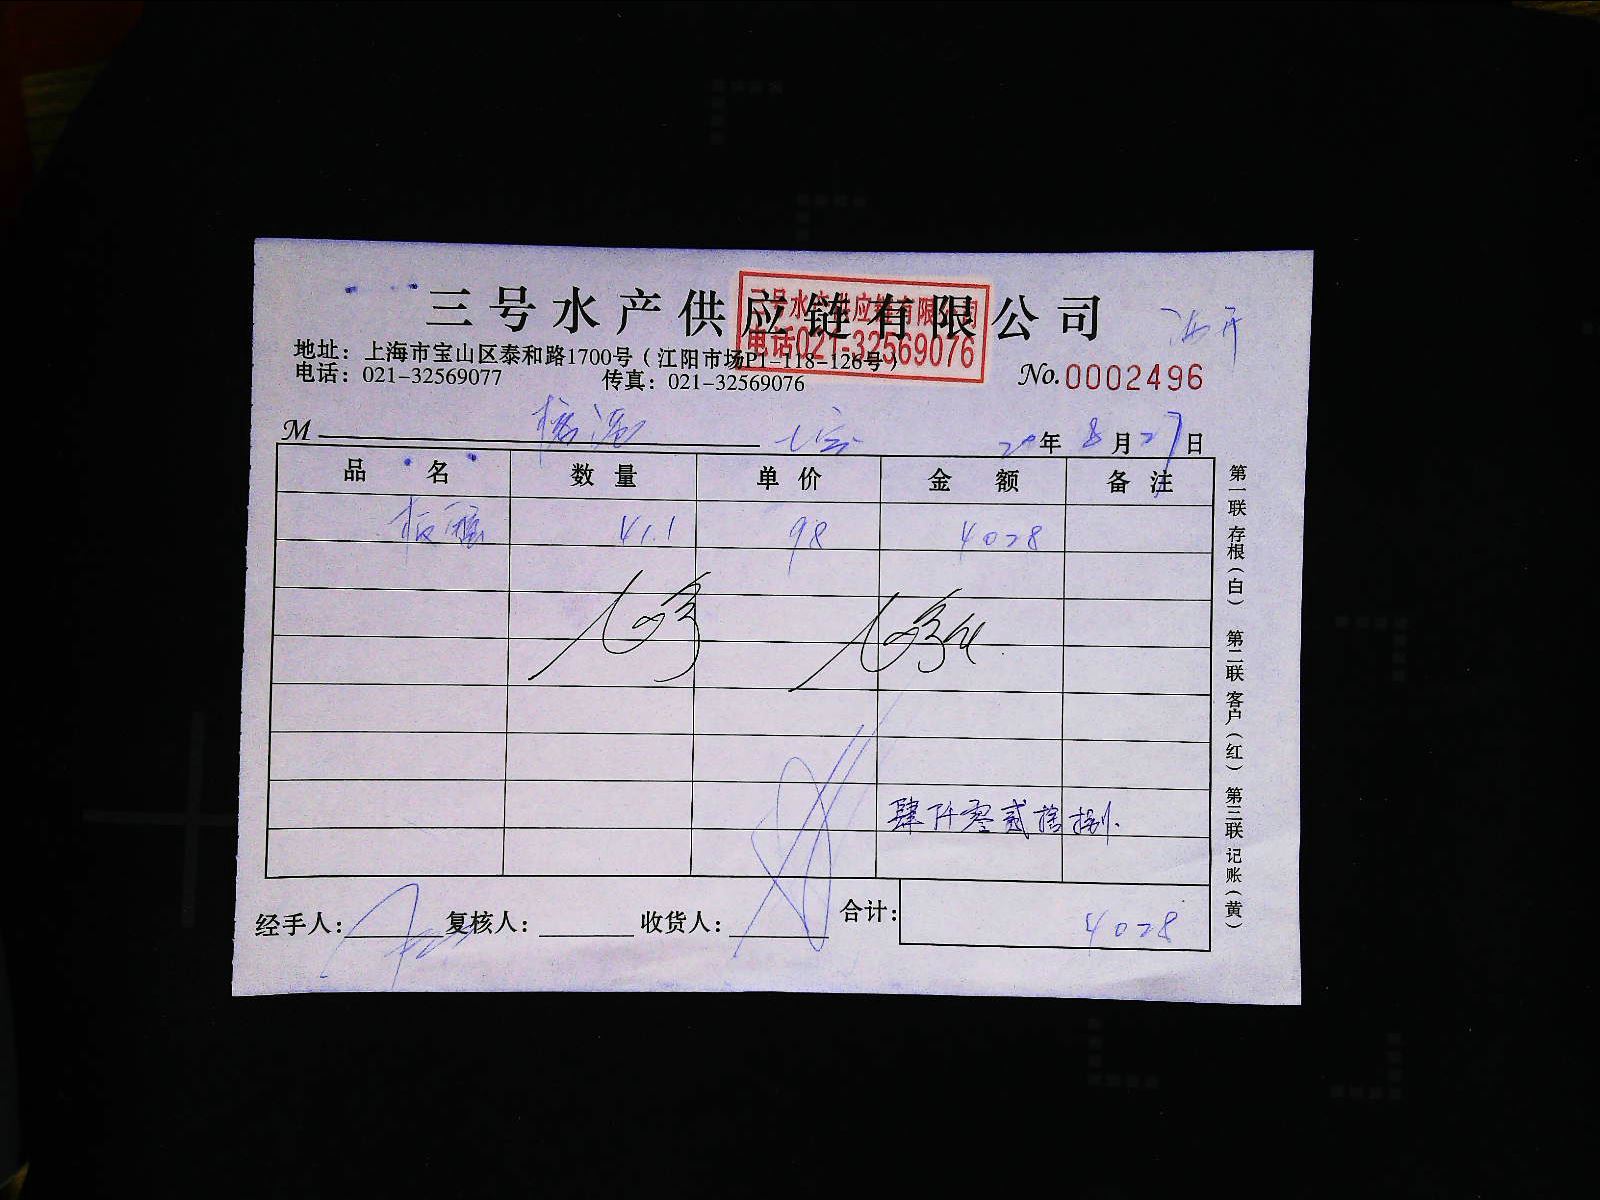 三号水产供应链有限公司
三号水产供应链有限公司
电话021-32569076
地址：上海市宝山区泰和路1700号（江阳市场P1-118-126号）
电话：021-32569077 传真：021-32569076
No.0002496
M
20年8月27日
品名 数量 单价 金额 备注
41.1 98 4028
肆仟零贰拾捌
经手人： 复核人： 收货人： 合计：4028
第一联 存根（白） 第二联 客户（红） 第三联 记账（黄）